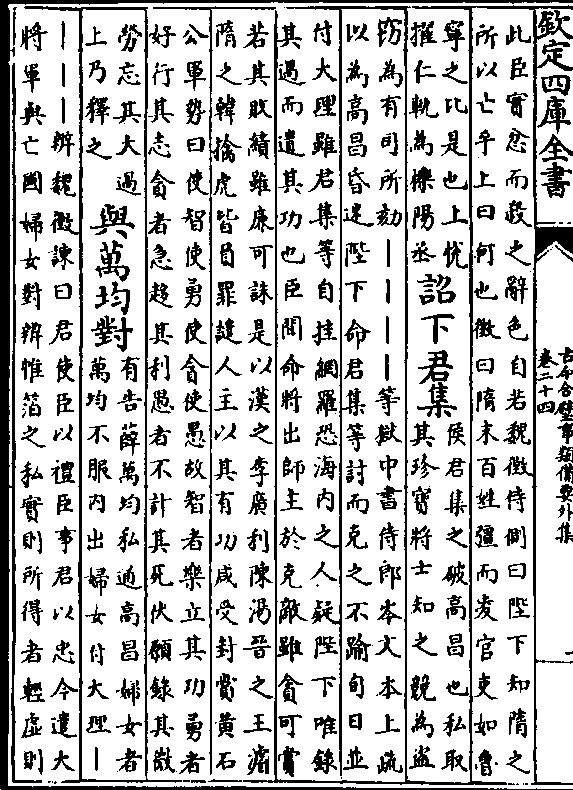 欽定四庫全書
古今合璧事類備要外集
卷二十四
此臣實忿而殺之辭色自若魏徵侍側曰陛下知隋之
所以亡乎上曰何也徵曰隋末百姓彊而凌官吏如魯
寧之比是也上悅
擢仁軌為櫟陽丞
詔下君集
侯君集之破高昌也私取
其珍寶將士知之競為盜
竊為有司所劾｜｜｜｜等獄中書侍郎岑文本上疏
以為高昌昏迷陛下命君集等討而克之不踰旬日並
付大理雖君集等自挂網羅恐海内之人疑陛下唯錄
其過而遺其功也臣聞命將出師主於克敵雖貪可賞
若其敗績雖廉可誅是以漢之李廣利陳湯晉之王濬
隋之韓擒虎皆負罪譴人主以其有功咸受封賞黃石
公軍勢曰使智使勇使貪使愚故智者樂立其功勇者
好行其志貪者急趨其利愚者不計其死伏願錄其微
勞忘其大過
上乃釋之
與萬均對
有告薛萬均私通高昌婦女者
萬均不服内出婦女付大理｜
｜｜｜辨魏徵諫曰君使臣以禮臣事君以忠今遣大
將軍與亡國婦女對辨帷箔之私實則所得者輕虛則